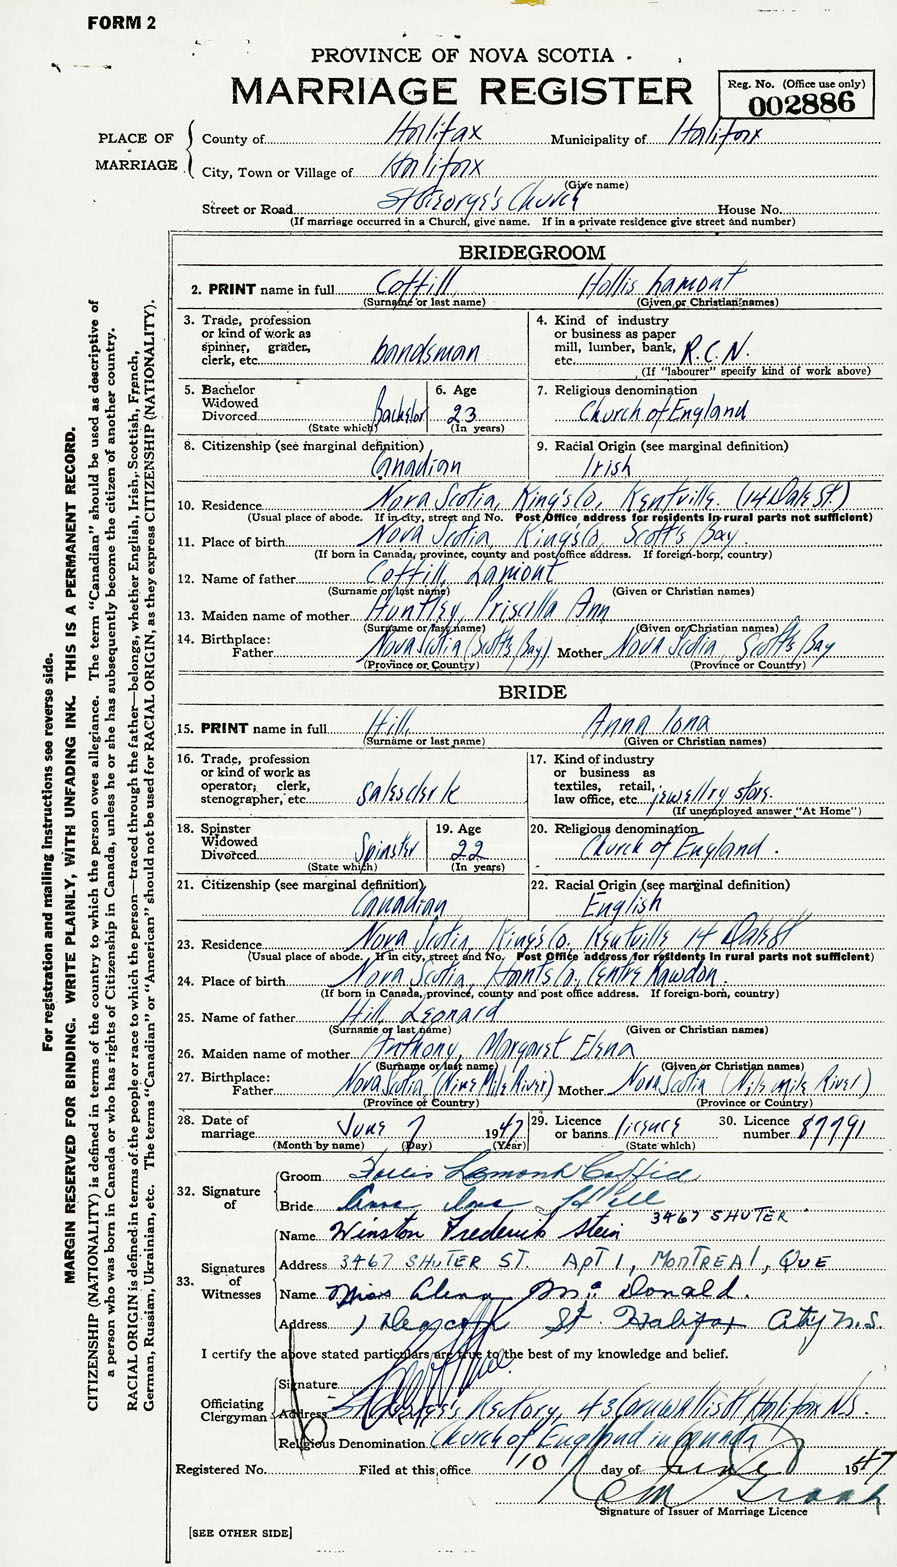 FORM 2
PROVINCE OF NOVA SCOTIA
MARRIAGE REGISTER
Reg. No. (Office use only)
002886
PLACE OF MARRIAGE
County of Halifax Municipality of Halifax
City, Town or Village of Halifax
(Give name)
Street or Road St George's Church House No.
(If marriage occurred in a Church, give name. If in a private residence give street and number)
BRIDEGROOM
2. PRINT name in full Coffill Hollis Lamont
(Surname or last name) (Given or Christian names)
3. Trade, profession or kind of work as spinner, grader, clerk, etc. bandsman
4. Kind of industry or business as paper mill, lumber, bank, etc. R.C.N.
(If "labourer" specify kind of work above)
5. Bachelor Widowed Divorced Bachelor
(State which)
6. Age 23
(In years)
7. Religious denomination Church of England
8. Citizenship (see marginal definition) Canadian
9. Racial Origin (see marginal definition) Irish
10. Residence Nova Scotia, King's Co, Kentville. (14 Dale St.)
(Usual place of abode. If in city, street and No. Post Office address for residents in rural parts not sufficient)
11. Place of birth Nova Scotia, King's Co, Scott's Bay.
(If born in Canada, province, county and post office address. If foreign-born, country)
12. Name of father Coffill, Lamont
(Surname or last name) (Given or Christian names)
13. Maiden name of mother Huntley, Priscilla Ann
(Surname or last name) (Given or Christian names)
14. Birthplace:
Father Nova Scotia (Scott's Bay) Mother Nova Scotia, Scott's Bay
(Province or Country) (Province or Country)
BRIDE
15. PRINT name in full Hill, Anna Iona
(Surname or last name) (Given or Christian names)
16. Trade, profession or kind of work as operator, clerk, stenographer, etc. salesclerk
17. Kind of industry or business as textiles, retail, law office, etc. jewellry store.
(If unemployed answer "At Home")
18. Spinster Widowed Divorced Spinster
(State which)
19. Age 22
(In years)
20. Religious denomination Church of England.
21. Citizenship (see marginal definition) Canadian
22. Racial Origin (see marginal definition) English
23. Residence Nova Scotia, King's Co. Kentville 14 Dale St
(Usual place of abode. If in city, street and No. Post Office address for residents in rural parts not sufficient)
24. Place of birth Nova Scotia, Hants Co, Centre Rawdon.
(If born in Canada, province, county and post office address. If foreign-born, country)
25. Name of father Hill, Leonard
(Surname or last name) (Given or Christian names)
26. Maiden name of mother Anthony, Margaret Elena
(Surname or last name) (Given or Christian names)
27. Birthplace:
Father Nova Scotia (Nine Mile River) Mother Nova Scotia (Nile mile River)
(Province or Country) (Province or Country)
28. Date of marriage June 7 1947
(Month by name) (Day) (Year)
29. Licence or banns licence
(State which)
30. Licence number 87791
32. Signature of
Groom Hollis Lamont Coffill
Bride Anna Iona Hill
33. Signatures of Witnesses
Name Winston Frederick Stein 3467 SHUTER
Address 3467 SHUTER ST. APT 1, MONTREAL, QUE
Name Miss Donald.
Address St. Halifax City N.S.
I certify the above stated particulars are true to the best of my knowledge and belief.
Officiating Clergyman
Signature
Address St George's Rectory, 43 Cornwallis St Halifax NS.
Religious Denomination Church of England in Canada
Registered No. Filed at this office 10 day of June 1947
Signature of Issuer of Marriage Licence
[SEE OTHER SIDE]
For registration and mailing instructions see reverse side.
MARGIN RESERVED FOR BINDING. WRITE PLAINLY, WITH UNFADING INK. THIS IS A PERMANENT RECORD.
CITIZENSHIP (NATIONALITY) is defined in terms of the country to which the person owes allegiance. The term "Canadian" should be used as descriptive of
a person who was born in Canada or who has rights of Citizenship in Canada, unless he or she has subsequently become the citizen of another country.
RACIAL ORIGIN is defined in terms of the people or race to which the person—traced through the father—belongs, whether English, Irish, Scottish, French,
German, Russian, Ukrainian, etc. The terms "Canadian" or "American" should not be used for RACIAL ORIGIN, as they express CITIZENSHIP (NATIONALITY).